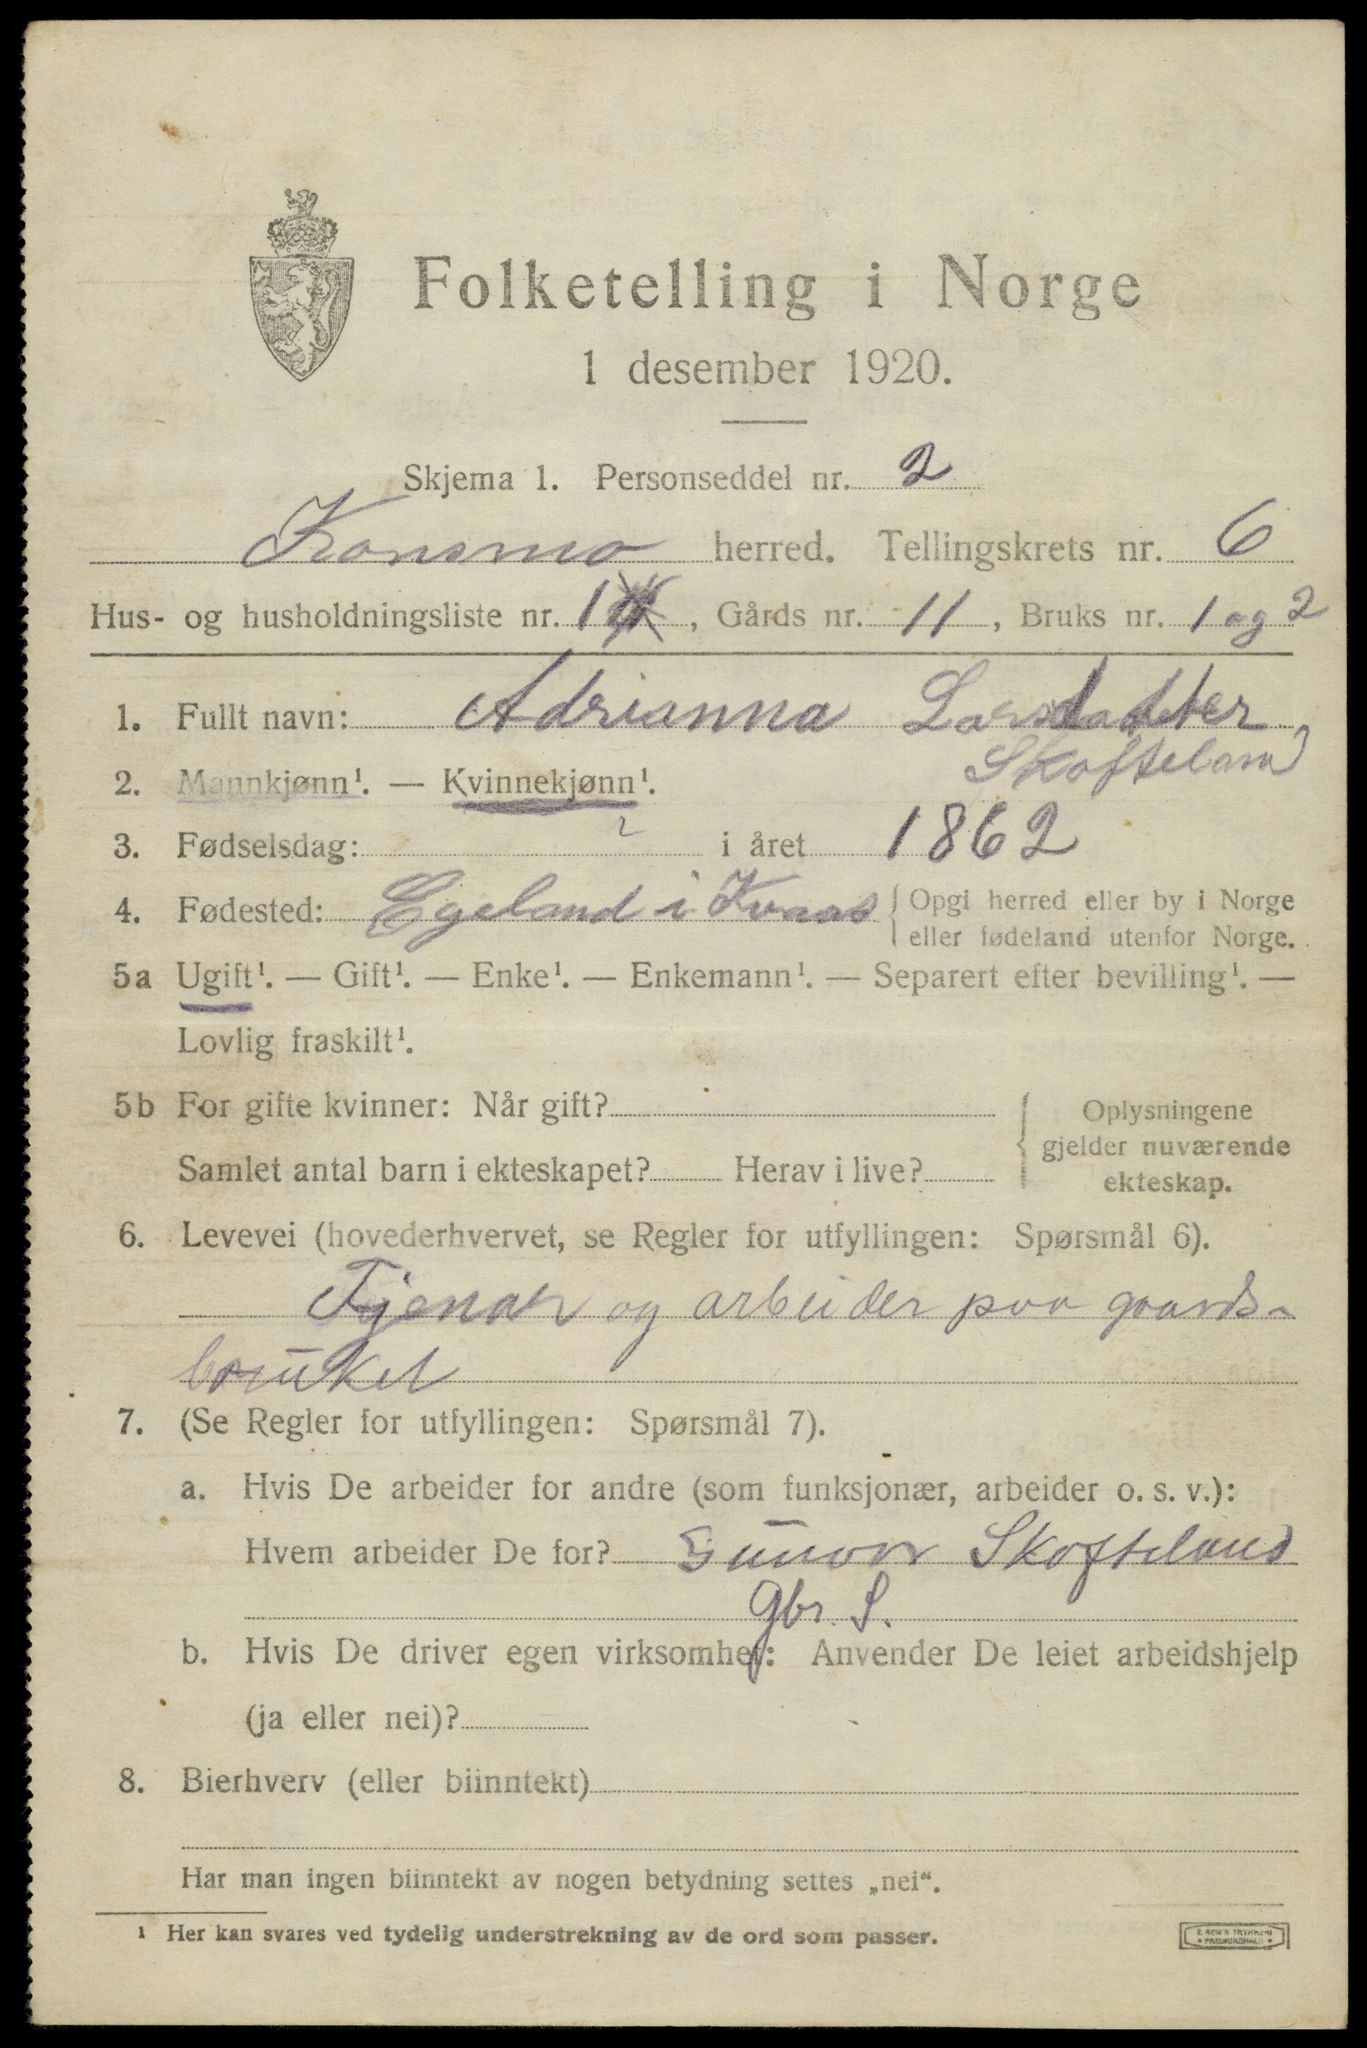 Folketelling i Norge
1 desember 1920.
Skjema 1. Personseddel nr. 2
Konsmo herred. Tellingskrets nr. 6
Hus- og husholdningsliste nr. 1, Gårds nr. 11, Bruks nr. 1 og 2
1. Fullt navn: Adrianna Larsdatter
Skofteland
2. Mannkjønn¹. — Kvinnekjønn¹.
3. Fødselsdag: 2 i året 1862
4. Fødested: Egeland i Kvaas { Opgi herred eller by i Norge
eller fødeland utenfor Norge.
5a Ugift¹. — Gift¹. — Enke¹. — Enkemann¹. — Separert efter bevilling¹. —
Lovlig fraskilt¹.
5b For gifte kvinner: Når gift? { Oplysningene
gjelder nuværende
Samlet antal barn i ekteskapet? Herav i live? ekteskap.
6. Levevei (hovederhvervet, se Regler for utfyllingen: Spørsmål 6).
Tjener og arbeider paa gaards-
bruket
7. (Se Regler for utfyllingen: Spørsmål 7).
a. Hvis De arbeider for andre (som funksjonær, arbeider o. s. v.):
Hvem arbeider De for? Gunvor Skofteland
Gbr. S.
b. Hvis De driver egen virksomhet: Anvender De leiet arbeidshjelp
(ja eller nei)?
8. Bierhverv (eller biinntekt)
Har man ingen biinntekt av nogen betydning settes „nei“.
¹ Her kan svares ved tydelig understrekning av de ord som passer.